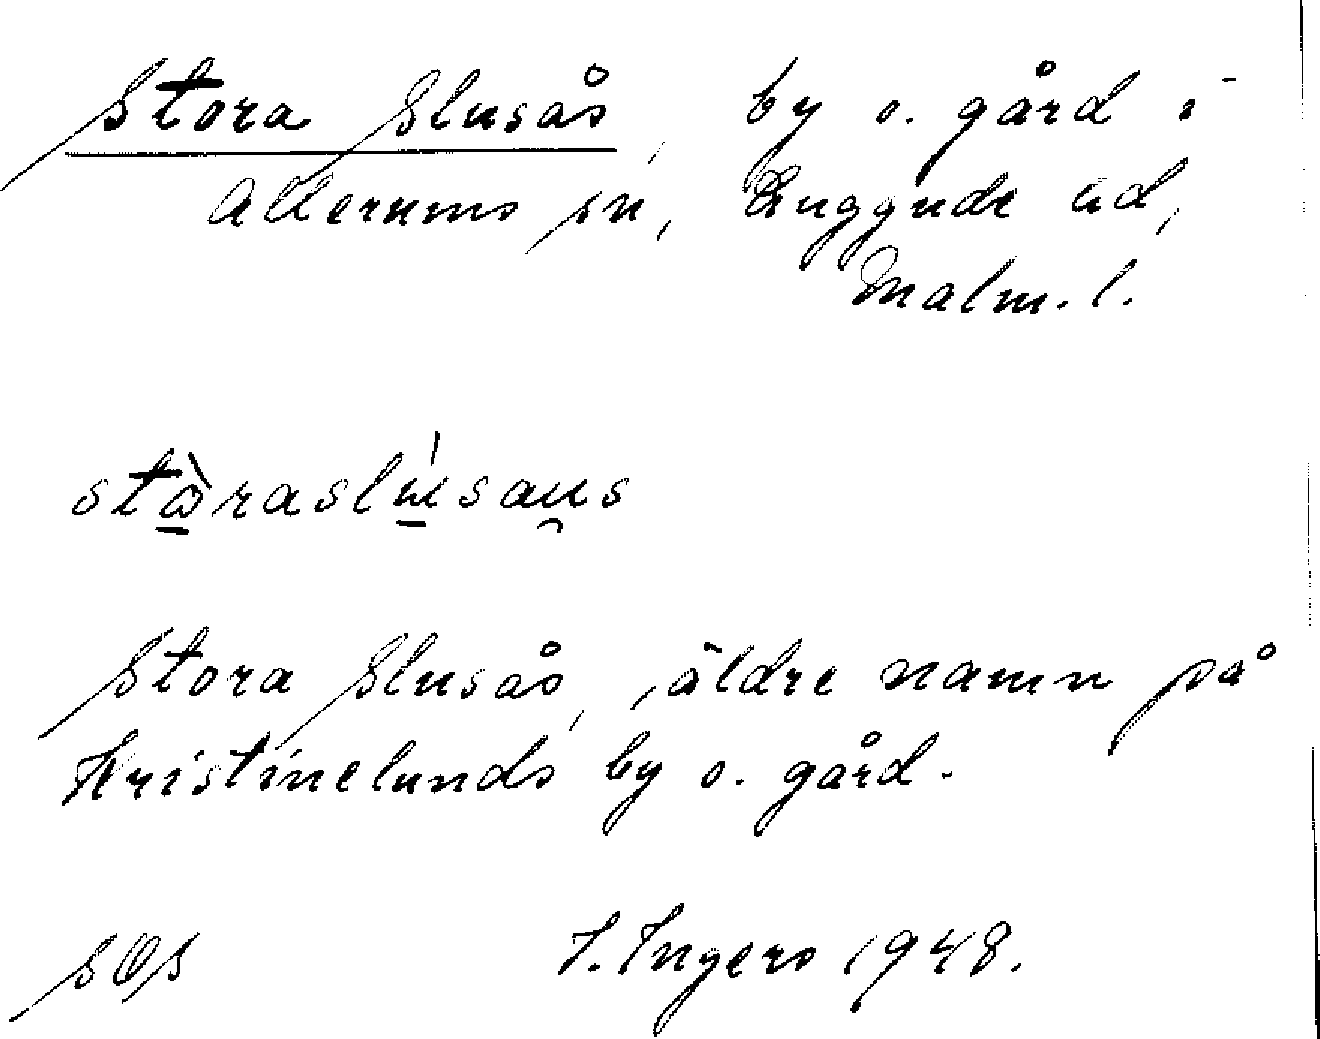 Stora Slusås, by o. gård i
Allerums sn, Luggude hd,
Malm. l.
Stora Slusås, äldre namn på
Kristinelunds by o. gård.
SOS I. Ingers 1948.